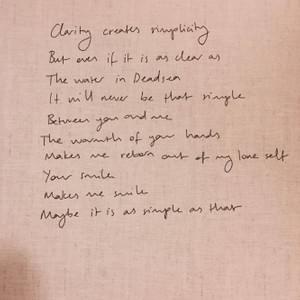 Clarity creates simplicity
But even if it is as clear as
The water in Deadsea
It will never be that simple
Between you and me
The warmth of your hands
Makes me reborn out of my lone self
Your smile
Makes me smile
Maybe it is as simple as that